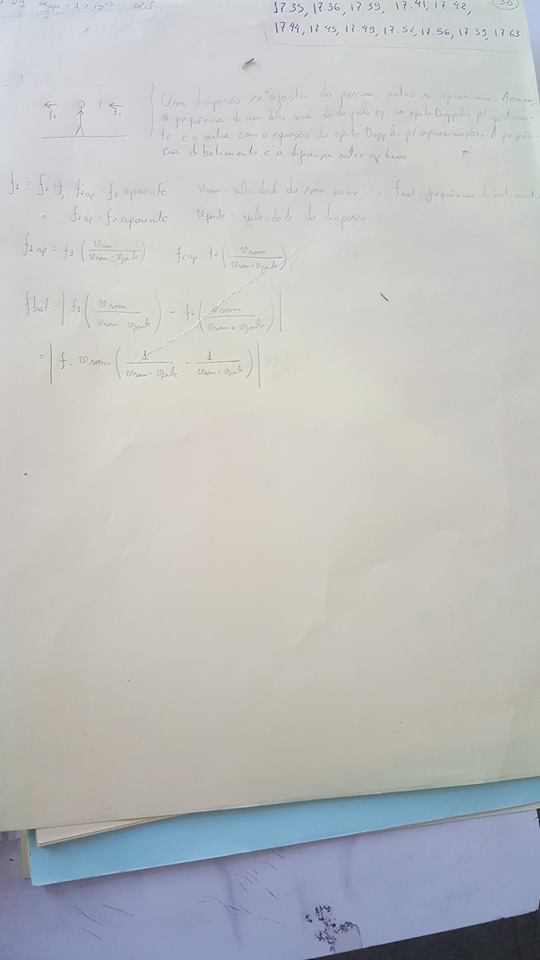 17.35, 17.36, 17.39, 17.41, 17.42,
36
17.44, 17.45, 17.49, 17.52, 17.56, 17.59, 17.63
Um diapasão se afasta da pessoa, outro se aproxima. Assim,
a frequência de um deles será dada pela eq. do efeito Doppler p/ afastamen-
to e a outra com a equação do efeito Doppler p/ aproximação. A frequên-
cia de batimento é a diferença entre as duas
f1 = f2 = f, f1ap = f1 aparente vsom = velocidade do som fbat = frequência de batimento
f2ap = f2 aparente vfonte = velocidade do diapasão
f1ap = f1 (vsom / vsom - vfonte) f2ap = f2 (vsom / vsom + vfonte)
fbat = | f1 (vsom / vsom - vfonte) - f2 (vsom / vsom + vfonte) |
= | f . vsom (1 / vsom - vfonte - 1 / vsom + vfonte) |